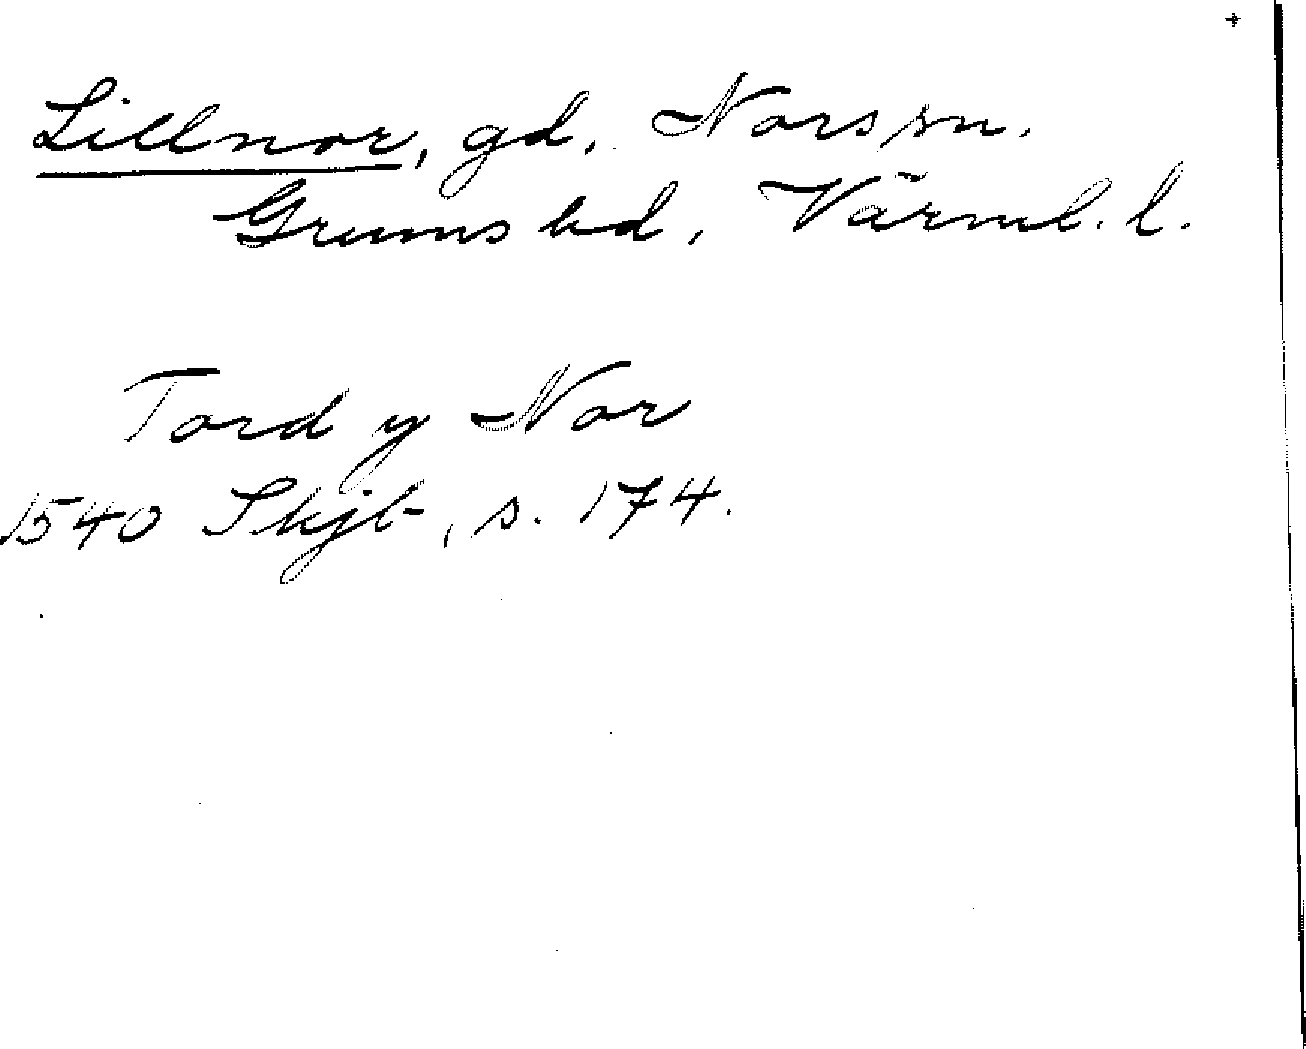 Lillnor, gd, Nors sn.
Grums hd, Värml. l.
Tord y Nor
1540 Skjb, s. 174.